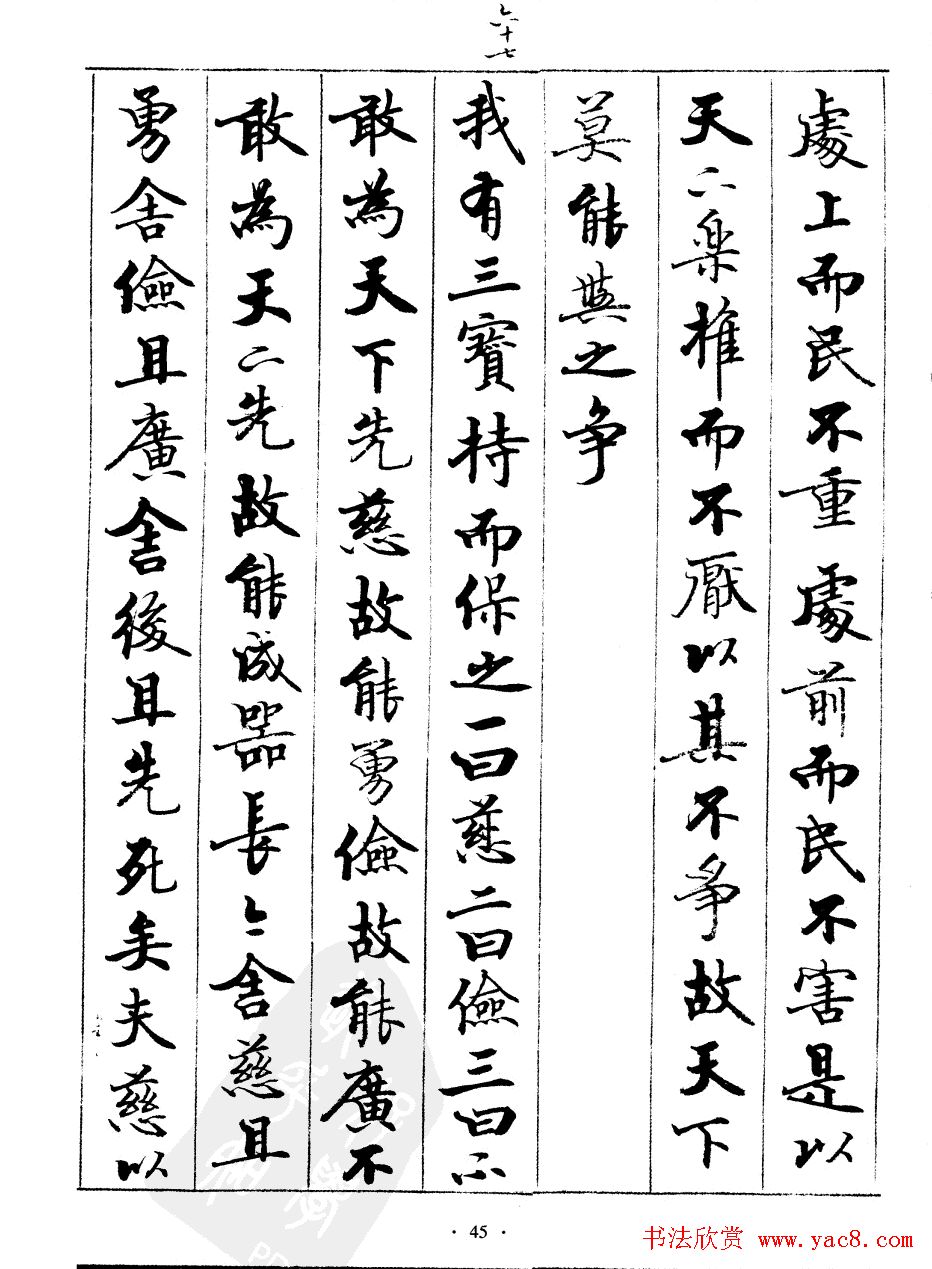 六十七
處上而民不重處前而民不害是以
天下樂推而不厭以其不爭故天下
莫能與之爭
我有三寶持而保之一曰慈二曰儉三曰不
敢為天下先慈故能勇儉故能廣不
敢為天下先故能成器長今舍慈且
勇舍儉且廣舍後且先死矣夫慈以
· 45 ·
书法欣赏 www.yac8.com